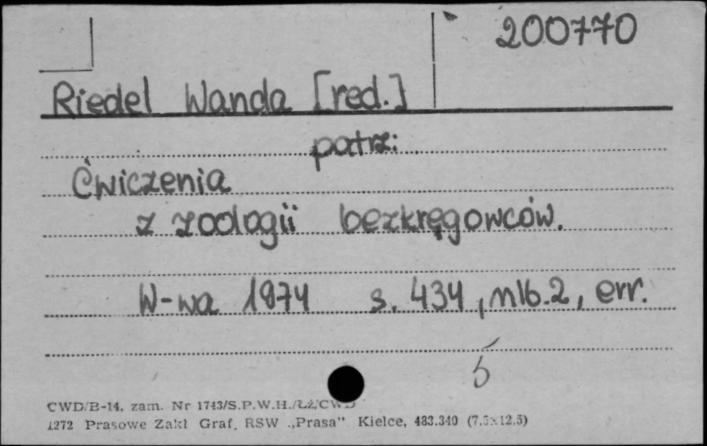 200770
Riedel Wanda [red.]
patrz:
Ćwiczenia
z zoologii bezkręgowców.
W-wa 1974 s. 434, nlb. 2, err.
5
CWD/B-14, zam. Nr 1743/S.P.W.H./ŁZ/CWD
1272 Prasowe Zakł Graf. RSW „Prasa" Kielce, 483.340 (7.5×12.5)